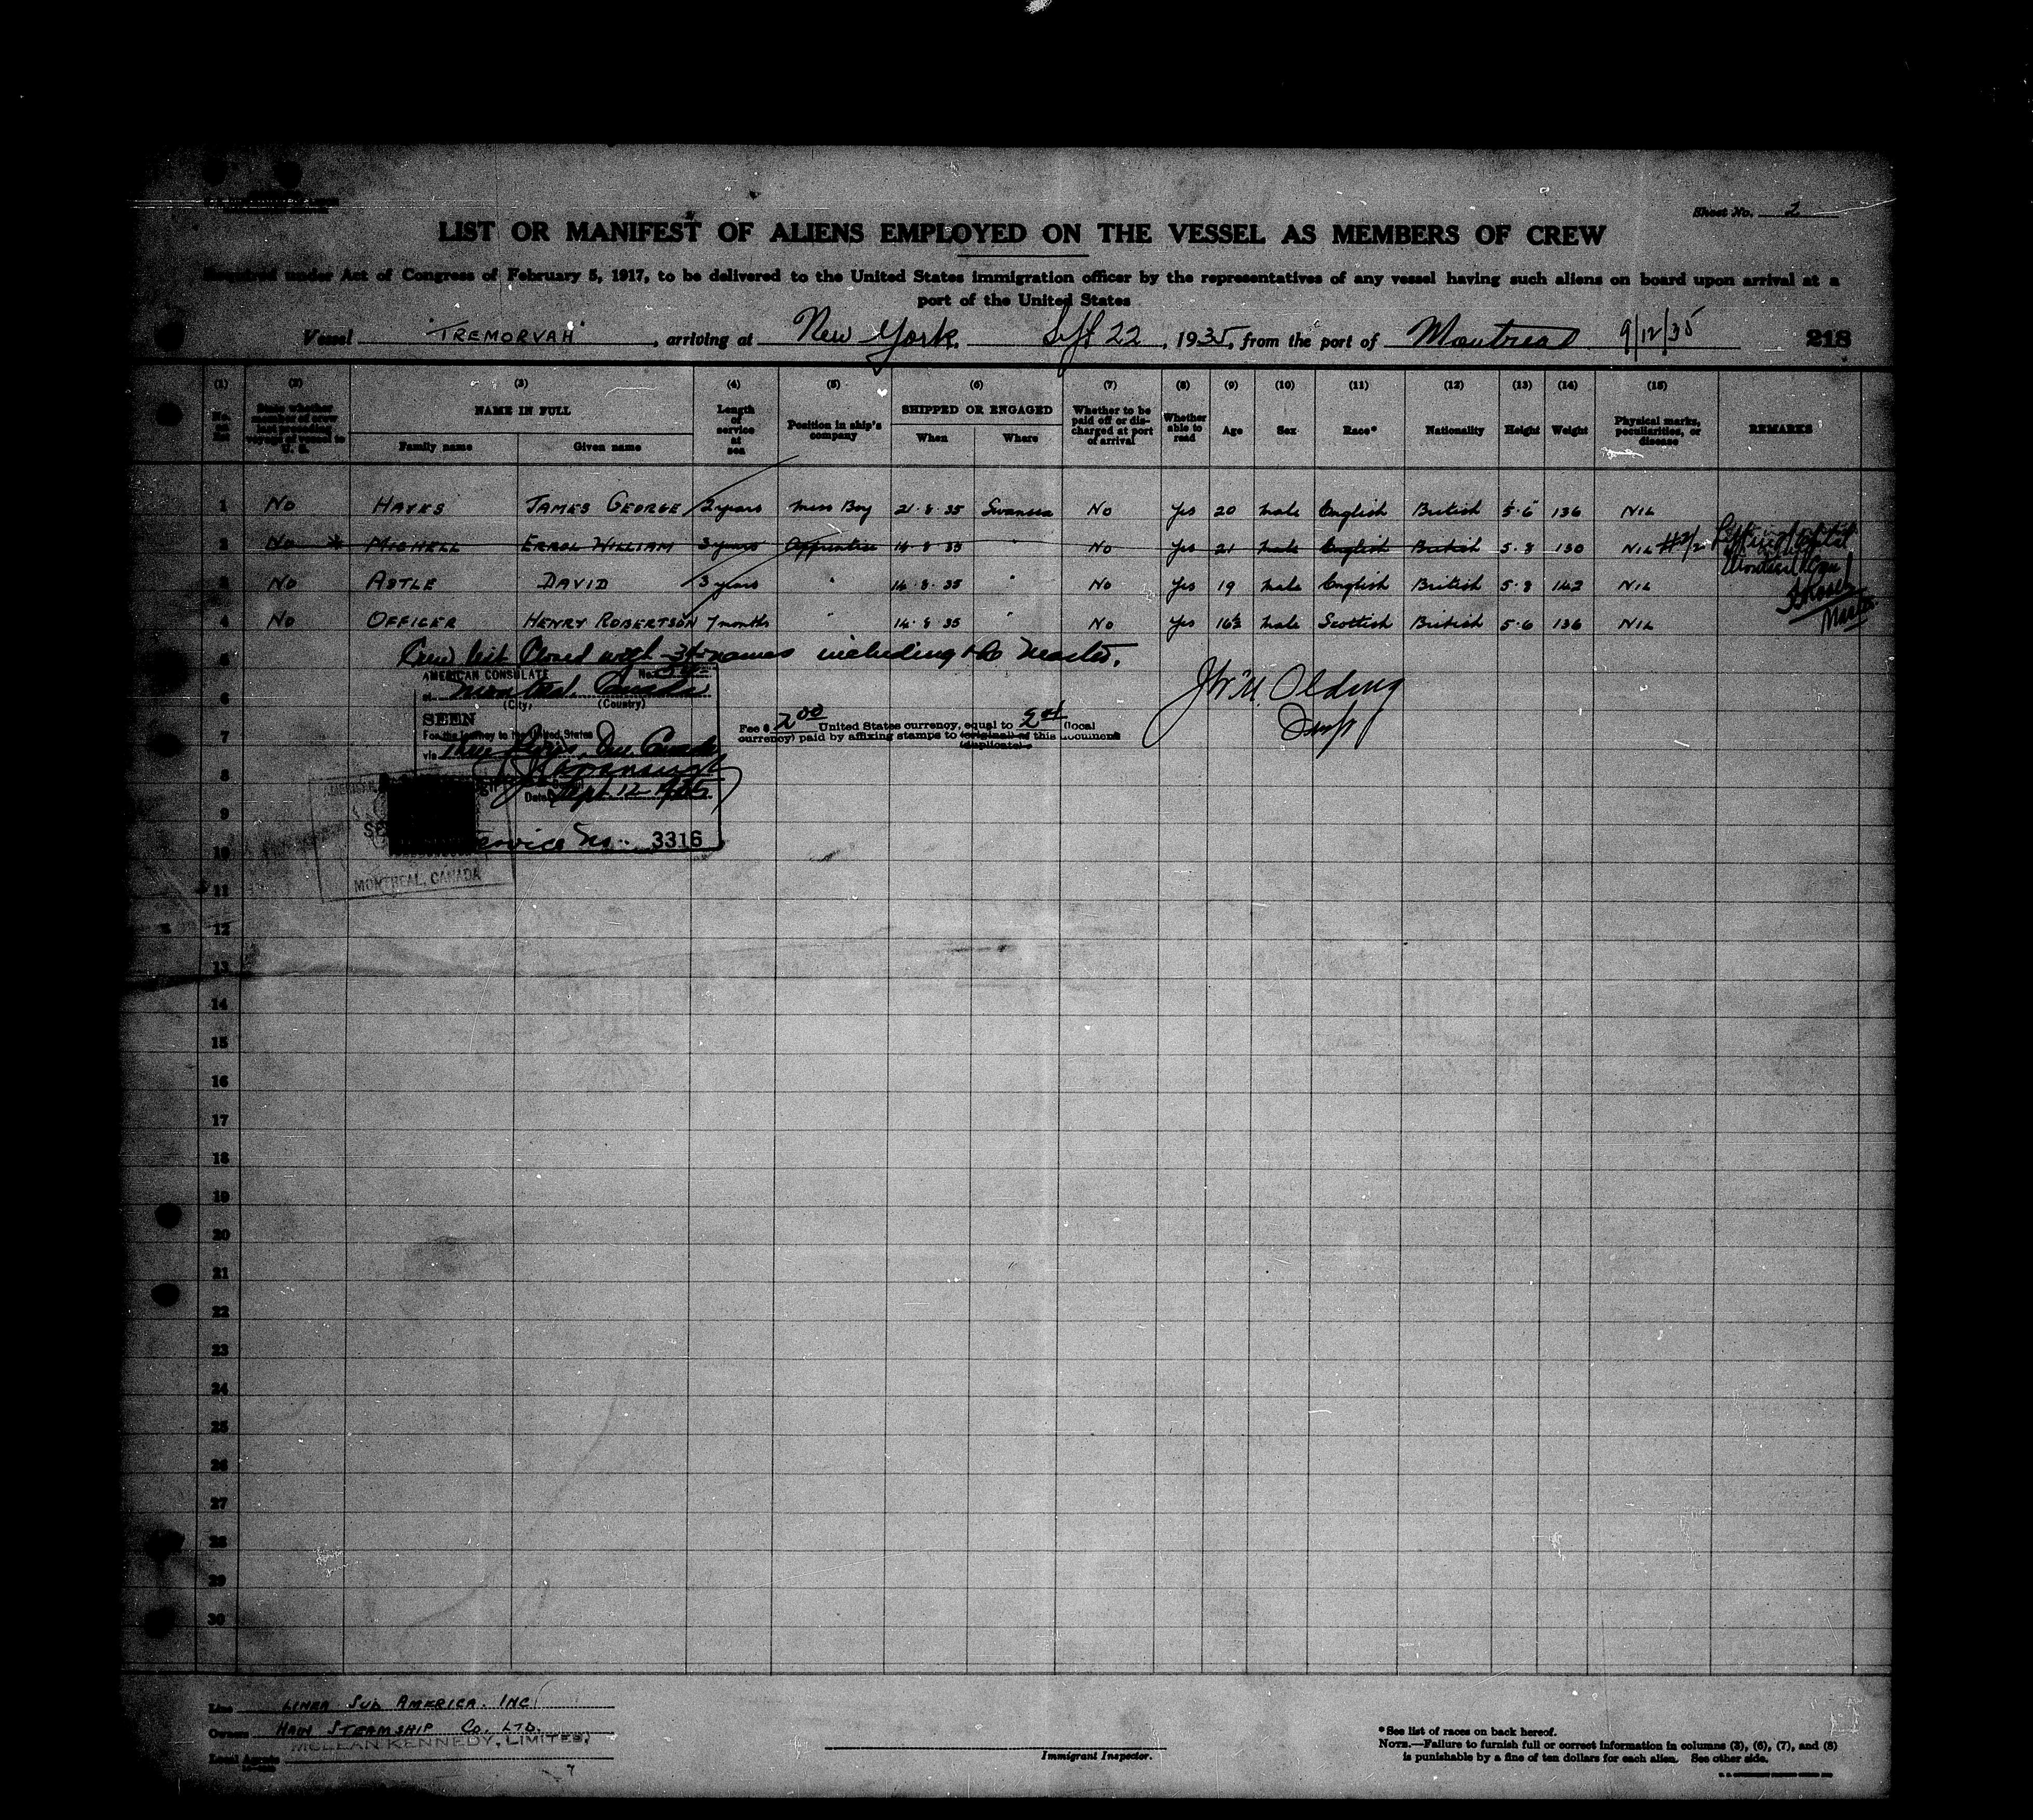 Sheet No. 2
LIST OR MANIFEST OF ALIENS EMPLOYED ON THE VESSEL AS MEMBERS OF CREW
Required under Act of Congress of February 5, 1917, to be delivered to the United States immigration officer by the representatives of any vessel having such aliens on board upon arrival at a
port of the United States
Vessel "TREMORVAH", arriving at New York, Sept 22, 1935, from the port of Montreal 9/12/35 218
(1) (2) (3) (4) (5) (6) (7) (8) (9) (10) (11) (12) (13) (14) (15)
No. on list
State whether member of crew last preceding voyage of vessel to U. S.
NAME IN FULL
Family name Given name
Length of service at sea
Position in ship's company
SHIPPED OR ENGAGED
When Where
Whether to be paid off or discharged at port of arrival
Whether able to read
Age Sex Race* Nationality Height Weight
Physical marks, peculiarities, or disease
REMARKS
1 No HAYES JAMES GEORGE 2 years Mess Boy 21.8.35 Swansea No Yes 20 Male English British 5.6 136 NIL
2 No * MICHELL ERROL WILLIAM 3 years Apprentice 14.8.35 " No Yes 21 Male English British 5.8 130 NIL
3 No ASTLE DAVID 3 years " 14.8.35 " No Yes 19 Male English British 5.8 142 NIL
4 No OFFICER HENRY ROBERTSON 7 months " 14.8.35 " No Yes 16½ Male Scottish British 5.6 136 NIL
Master
5 Crew list Closed with 34 names including the Master.
AMERICAN CONSULATE No.
6 at Montreal Canada
(City) (Country)
SEEN
For the journey to the United States
7 via Three Rivers, Que. Canada
Fee $ 2.00 United States currency, equal to (local
currency) paid by affixing stamps to (original) of this document
(duplicate)
8
Date Sept. 12 1935
9
10 Service No. 3316
MONTREAL, CANADA
11
12
13
14
15
16
17
18
19
20
21
22
23
24
25
26
27
28
29
30
Line LINEA SUD AMERICA. INC
Owners HAIN STEAMSHIP CO. LTD.
Local Agents MCLEAN KENNEDY, LIMITED,
Immigrant Inspector.
*See list of races on back hereof.
NOTE.—Failure to furnish full or correct information in columns (3), (6), (7), and (8)
is punishable by a fine of ten dollars for each alien. See other side.